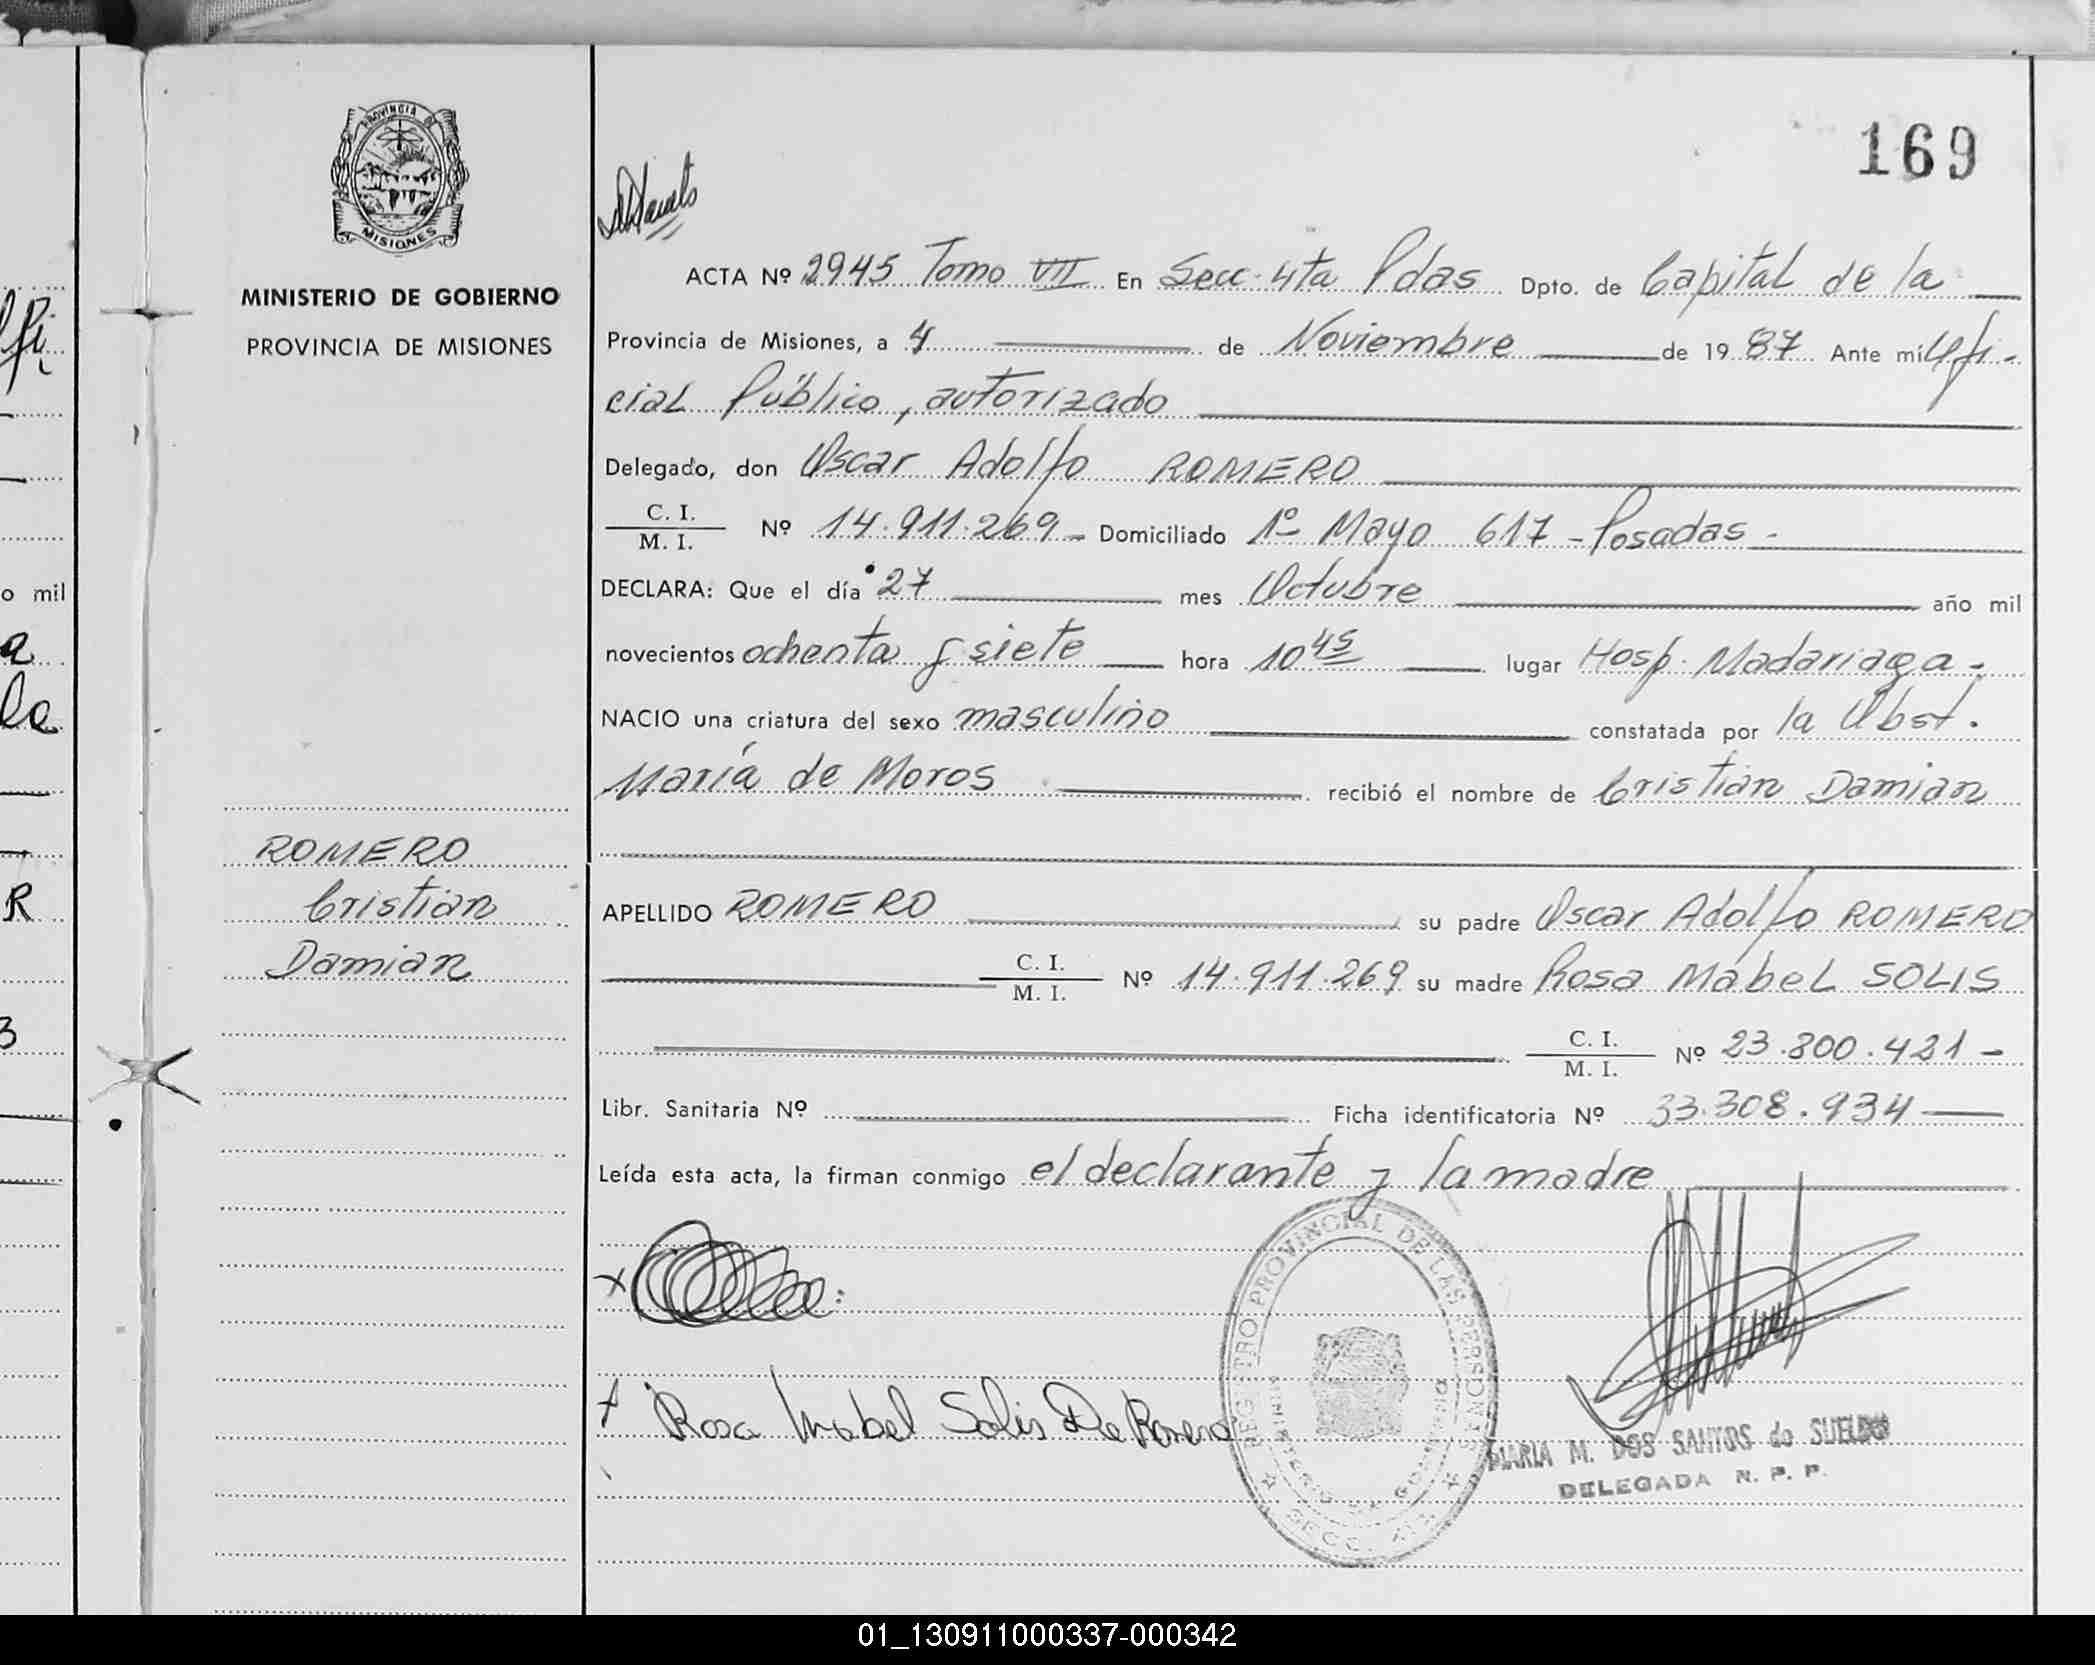 169
PROVINCIA DE
MISIONES
MINISTERIO DE GOBIERNO
PROVINCIA DE MISIONES
ACTA Nº 2945 Tomo VII En Secc. 4ta Pdas Dpto. de Capital de la
Provincia de Misiones, a 4 de Noviembre de 1987 Ante mí Ofi-
cial Público, autorizado
Delegado, don Oscar Adolfo ROMERO
C. I.
M. I. Nº 14.911.269 - Domiciliado 1º Mayo 617 - Posadas -
DECLARA: Que el día 27 mes Octubre año mil
novecientos ochenta y siete hora 10 45 lugar Hosp. Madariaga -
NACIO una criatura del sexo masculino constatada por la Obst.
María de Moros recibió el nombre de Cristian Damian
ROMERO
Cristian
Damian
APELLIDO ROMERO su padre Oscar Adolfo ROMERO
C. I.
M. I. Nº 14.911.269 su madre Rosa Mabel SOLIS
C. I.
M. I. Nº 23.800.421 -
Libr. Sanitaria Nº Ficha identificatoria Nº 33.308.934
Leída esta acta, la firman conmigo el declarante y la madre
REGISTRO PROVINCIAL DE LAS PERSONAS
MINISTERIO DE GOBIERNO
Rosa Mabel Solis De Romero
MARIA M. DOS SANTOS de SUELDO
DELEGADA R. P. P.
o mil
01_130911000337-000342